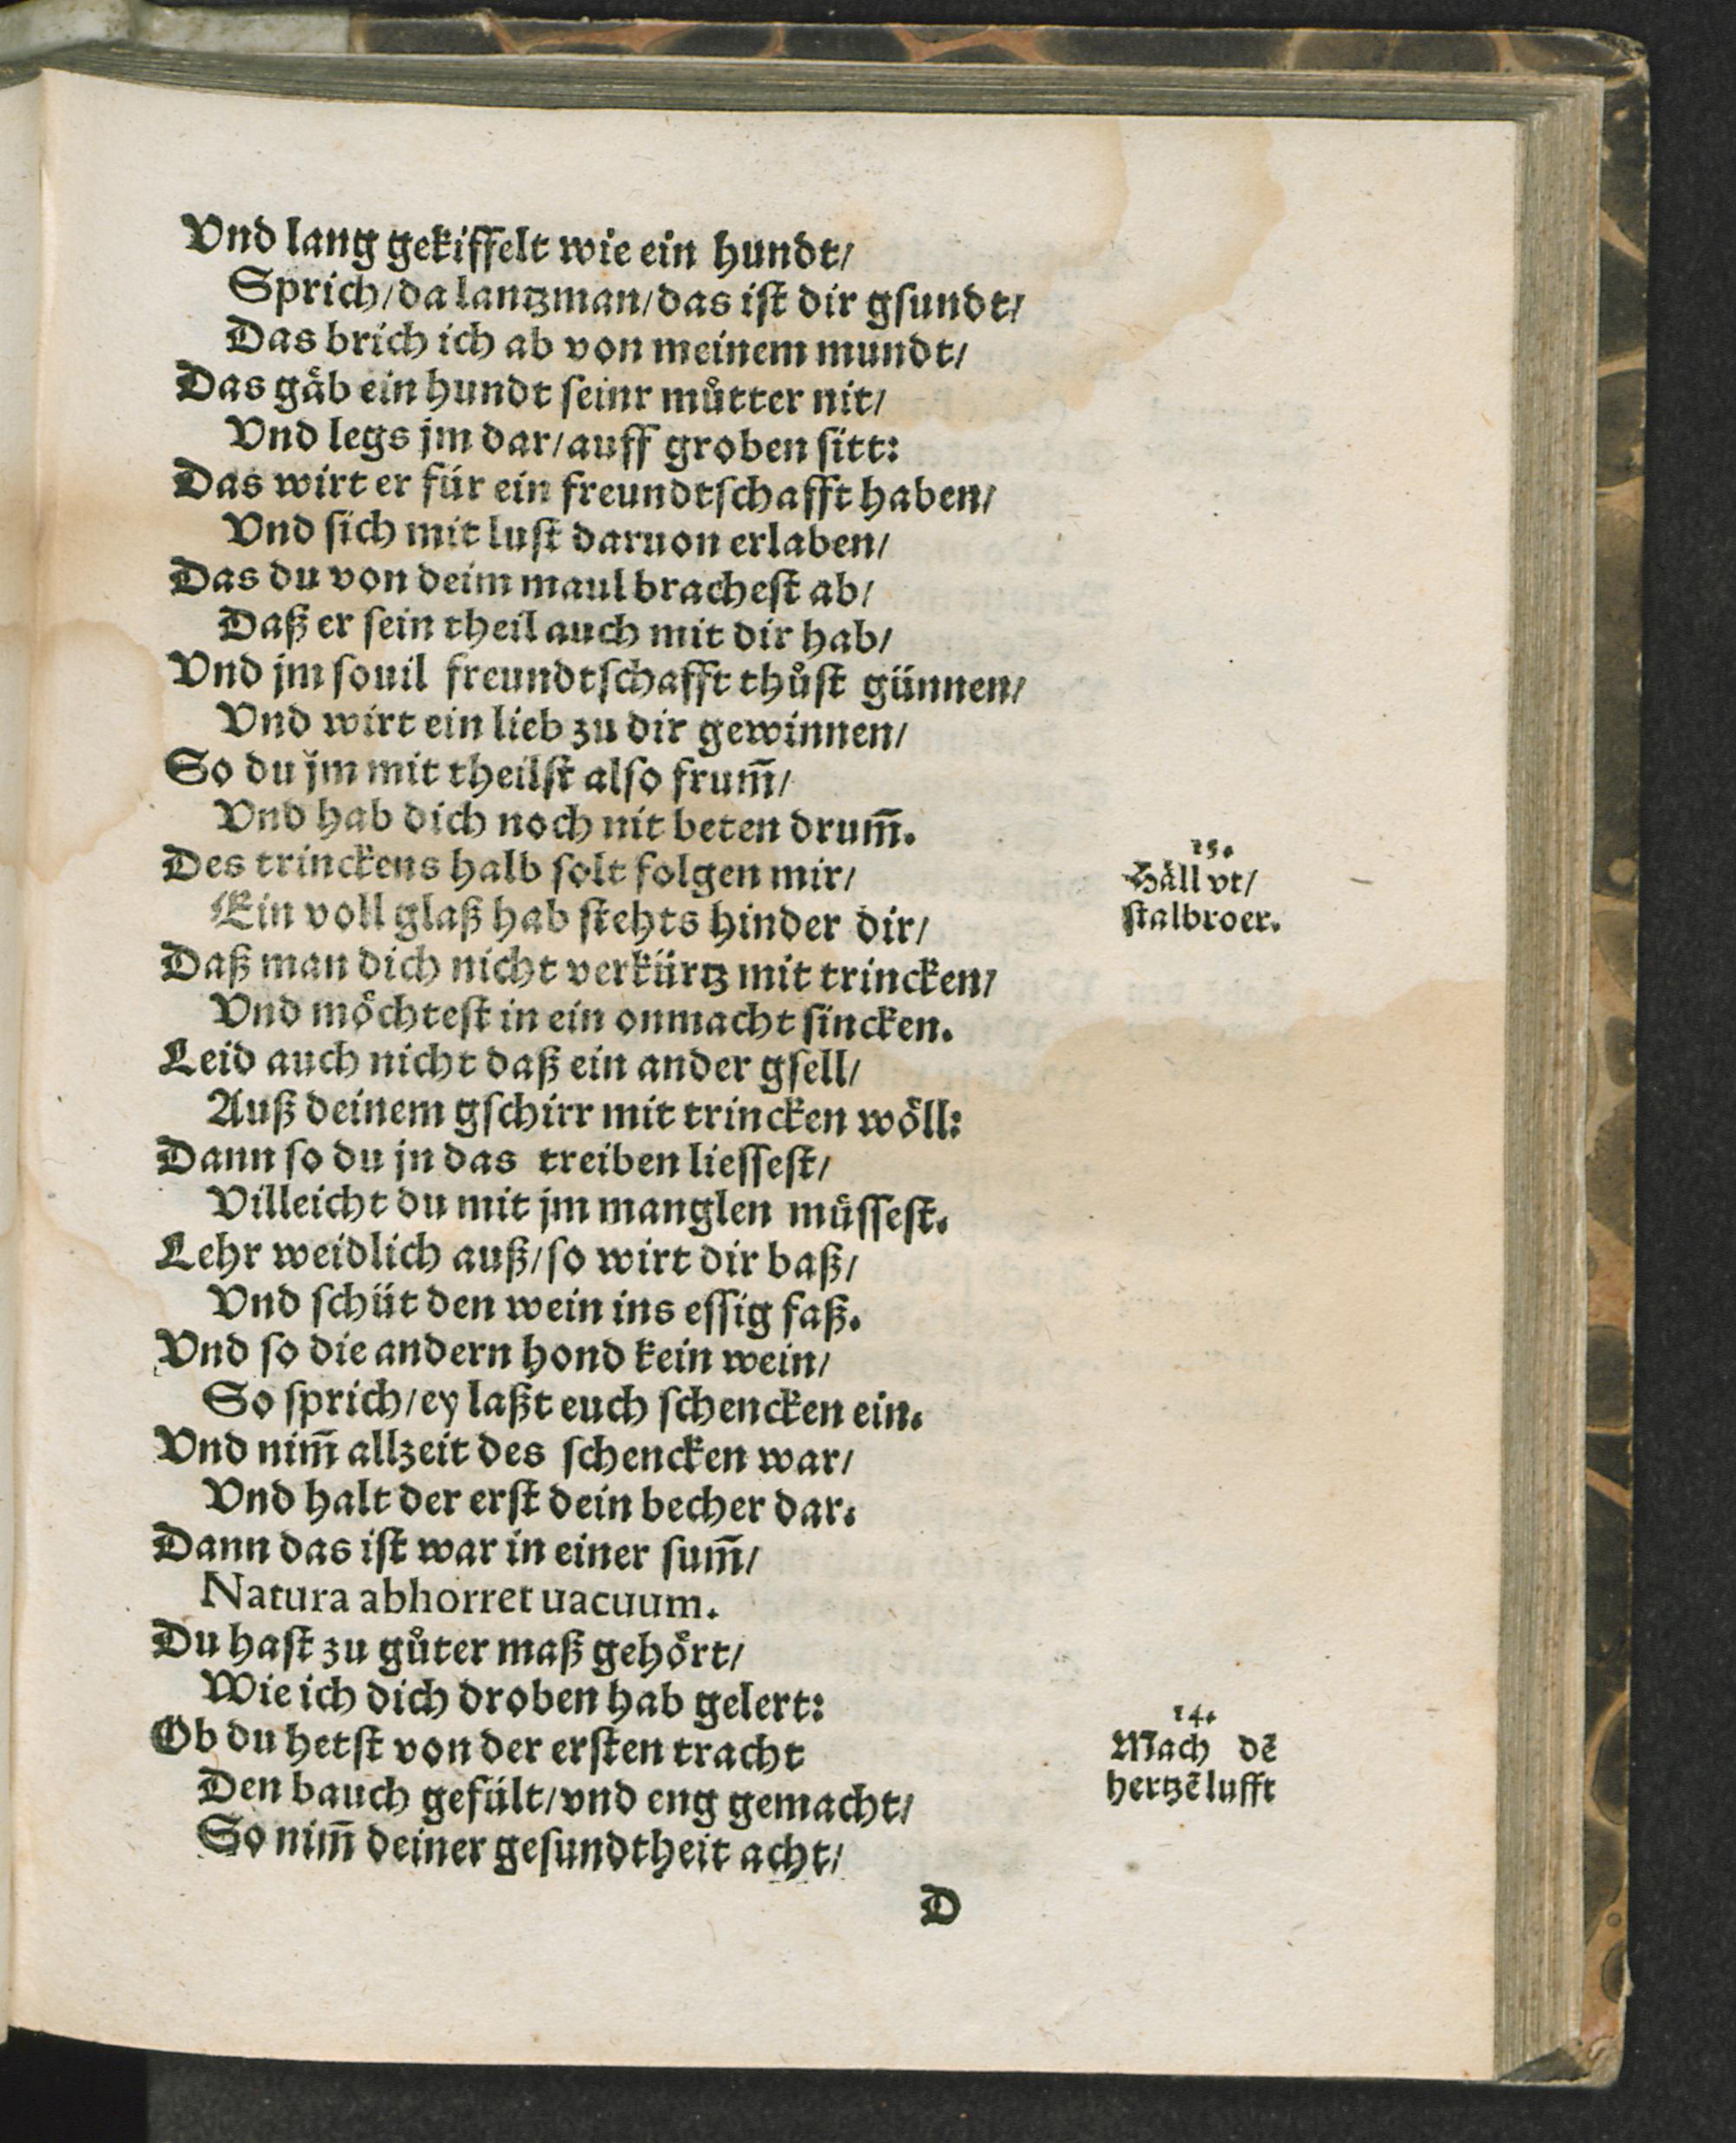 Vnd lang gekiffelt wie ein hundt/
Sprich/da lantzman/das ist dir gsundt/
Das brich ich ab von meinem mundt/
Das gäb ein hundt seinr můtter nit/
Vnd legs jm dar/auff groben sitt:
Das wirt er für ein freundtschafft haben/
Vnd sich mit lust daruon erlaben/
Das du von deim maul brachest ab/
Daß er sein theil auch mit dir hab/
Vnd jm souil freundtschafft thůst günnen/
Vnd wirt ein lieb zu dir gewinnen/
So du jm mit theilst also frum̄/
Vnd hab dich noch nit beten drum̄.
Des trinckens halb solt folgen mir/
Ein voll glaß hab stehts hinder dir/
Daß man dich nicht verkürtz mit trincken/
Vnd möchtest in ein onmacht sincken.
Leid auch nicht daß ein ander gsell/
Auß deinem gschirr mit trincken wöll:
Dann so du jn das treiben liessest/
Villeicht du mit jm manglen müssest.
Lehr weidlich auß/so wirt dir baß/
Vnd schüt den wein ins essig faß.
Vnd so die andern hond kein wein/
So sprich/ey laßt euch schencken ein.
Vnd nim̄ allzeit des schencken war/
Vnd halt der erst dein becher dar.
Dann das ist war in einer sum̄/
Natura abhorret uacuum.
Du hast zu gůter maß gehört/
Wie ich dich droben hab gelert:
Ob du hetst von der ersten tracht
Den bauch gefült/vnd eng gemacht/
So nim̄ deiner gesundtheit acht/
D
Häll vt/
stalbroer.
14.
Mach dē
hertzē lufft